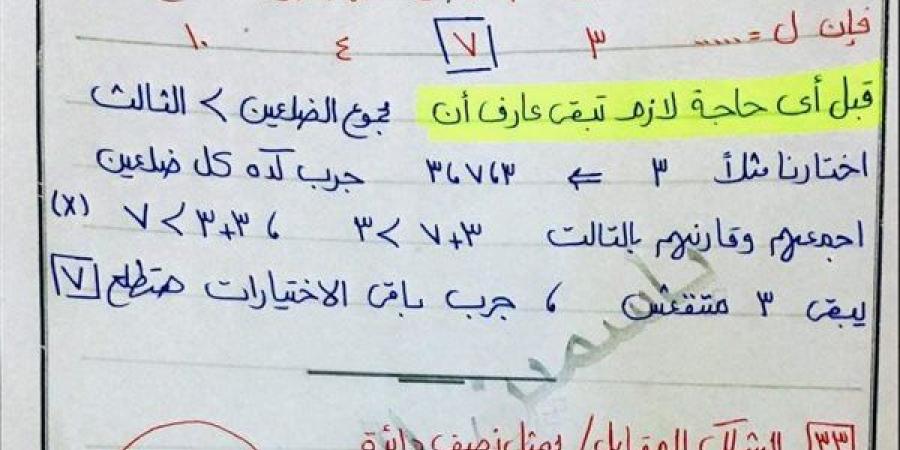 فإن ل = ...... ٣ ٧ ٤ ١٠
قبل أى حاجة لازم تبقى عارف أن مجموع الضلعين > الثالث
اختارنا مثلاً ٣ ⇐ ٣،٧،٣ جرب كده كل ضلعين
اجمعهم وقارنهم بالتالت ٣+٧ > ٣ ، ٣+٣ > ٧ (X)
يبقى ٣ متنفعش ، جرب باقى الاختيارات هتطلع ٧
٣٣ الشكل المقابل / يمثل نصف دائرة